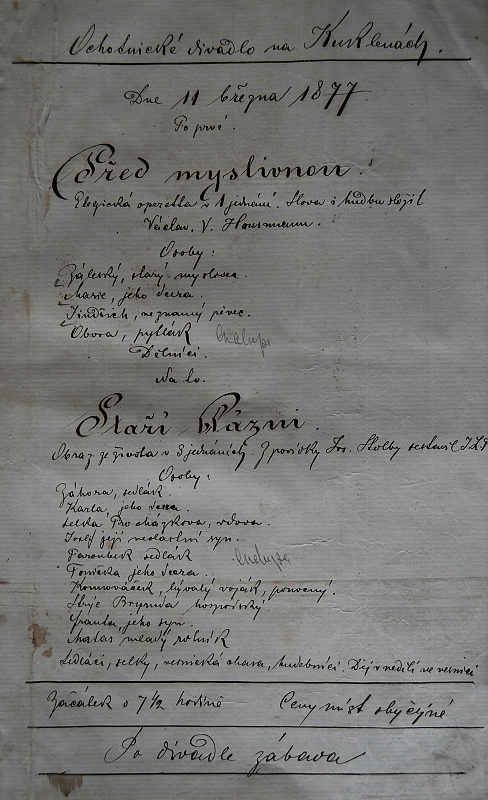 Ochotnické divadlo na Kuklenách.
Dne 11 března 1877.
Po prvé.
Před myslivnou.
Elegická operetta v 1 jednání. Slova i hudbu složil
Václav. V. Hausmann.
Osoby:
Záleský, starý myslivec
Marie, jeho dcera.
Jindřich, neznámý pěvec.
Obora, pytlák Chalupa
Dělníci.
Na to.
Staří Blázni.
Obraz ze života v 3 jednáních. Z povídky Jos. Štolby sestavil
Osoby:
Záhora, sedlák.
Karla, jeho dcera.
selka Procházkova, vdova.
Josef její nevlastní syn.
Paroubek sedlák
Tonička jeho dcera.
Kominváček, bývalý voják, ponocný.
Strýc Brynda hospodský
Franta, jeho syn.
Matas mladý rolník
Sedláci, selky, vesnická chasa, hudebníci. Děj v neděli ve vesnici
Začátek o 7½ hodině Ceny míst obyčejné
Po divadle zábava